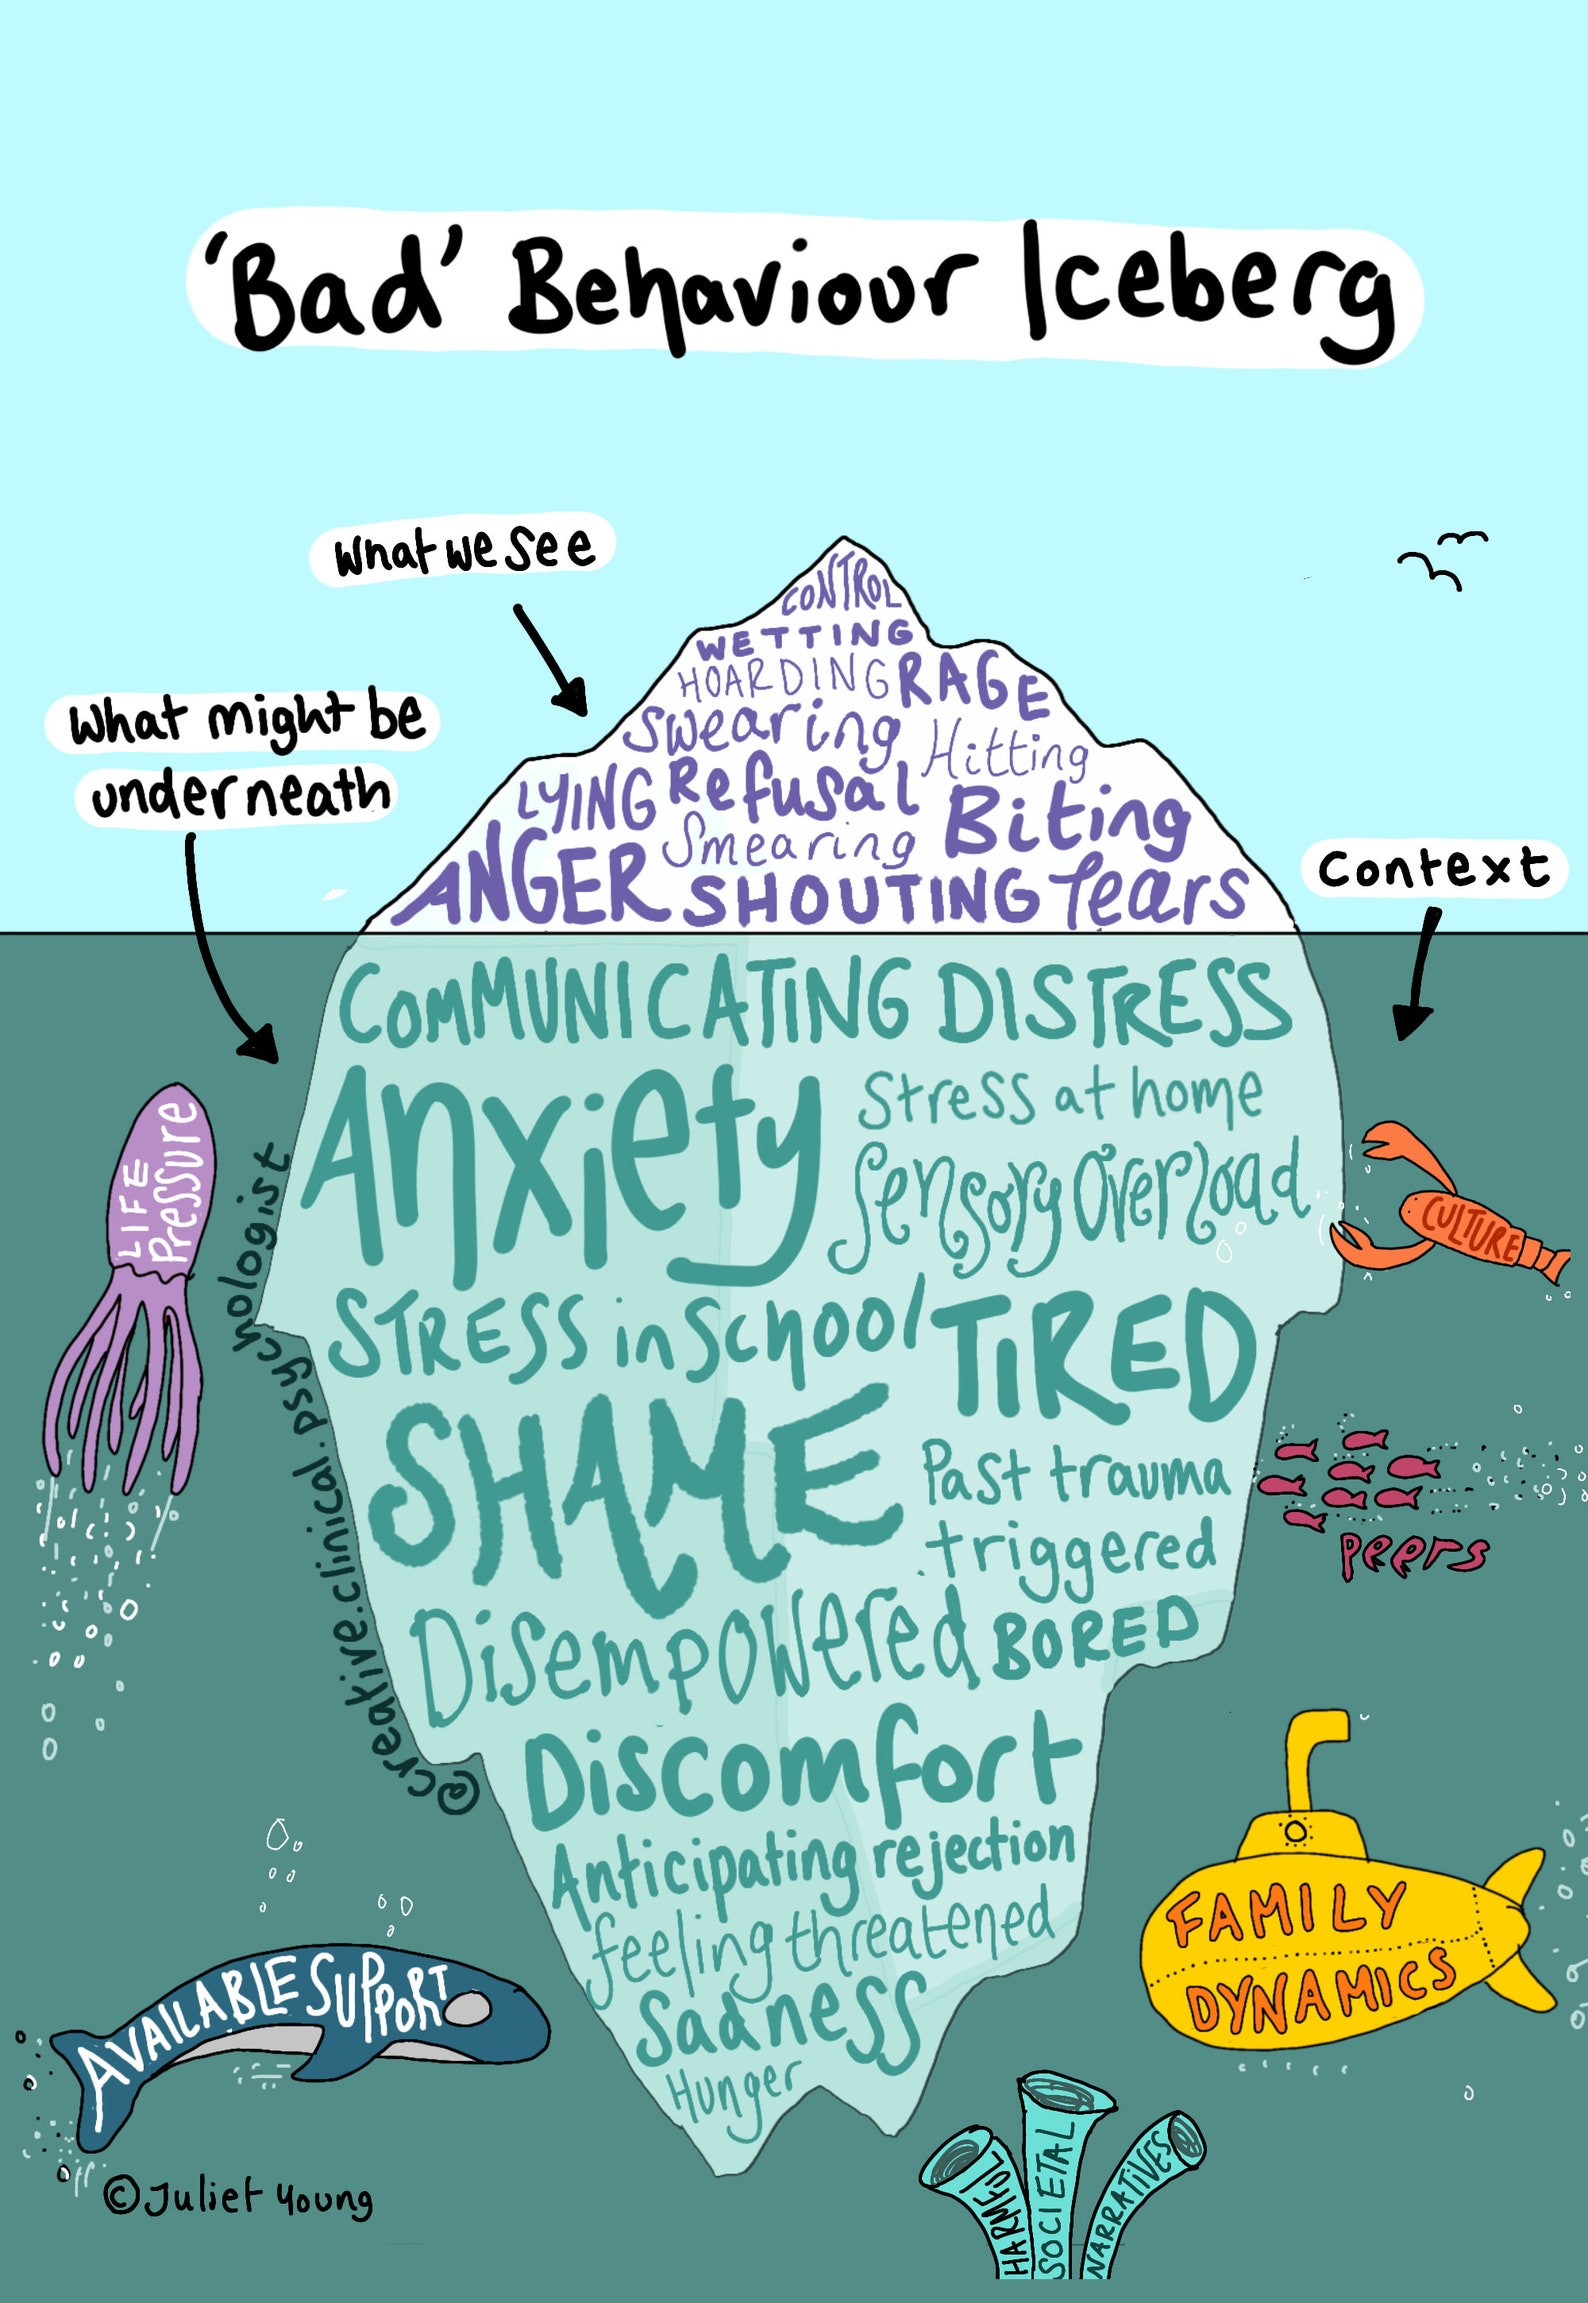 'Bad' Behaviour Iceberg
What we see
What might be
underneath
Context
CONTROL
WETTING
HOARDING RAGE
Swearing Hitting
LYING Refusal Biting
ANGER Smearing
SHOUTING Tears
COMMUNICATING DISTRESS
Anxiety Stress at home
Sensory Overload
STRESS in School TIRED
SHAME Past trauma
triggered
Disempowered BORED
Discomfort
Anticipating rejection
feeling threatened
Sadness
Hunger
LIFE
Pressure
CULTURE
peers
FAMILY
DYNAMICS
AVAILABLE SUPPORT
HARMFUL
SOCIETAL
NARRATIVES
@creative.clinical.psychologist
©Juliet Young